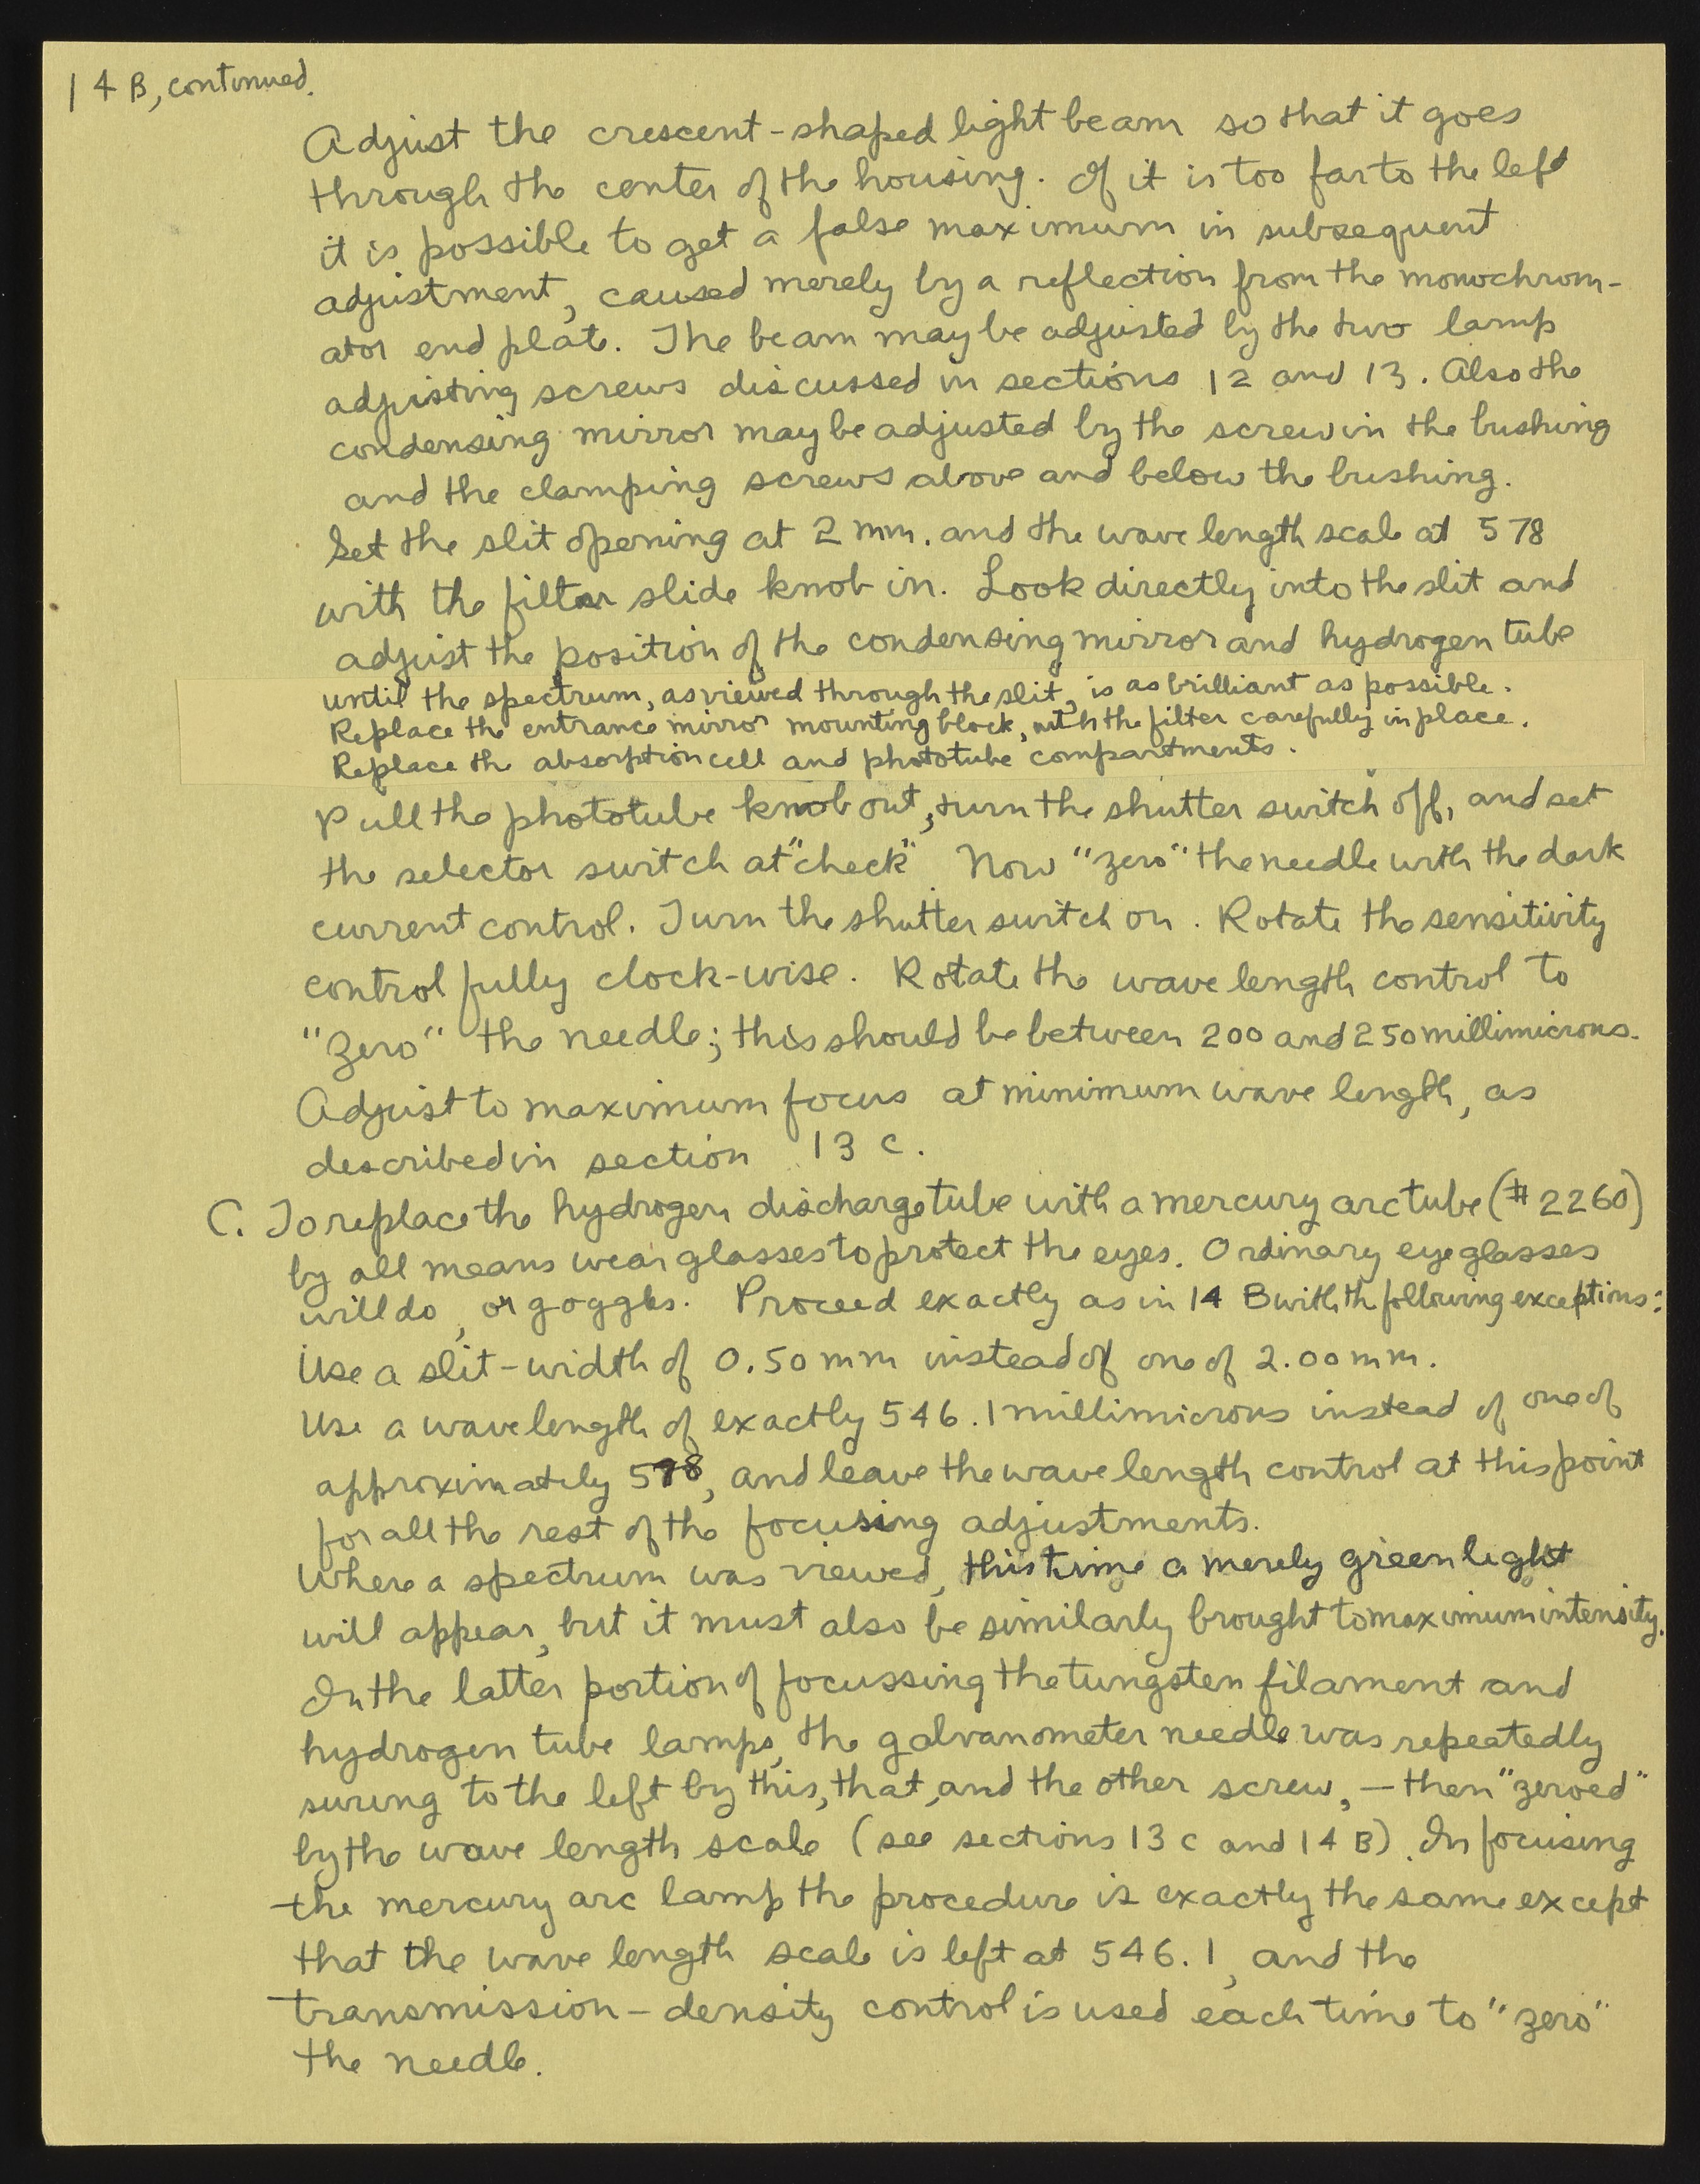 14 B, continued.
Adjust the crescent-shaped light beam so that it goes
through the center of the housing. If it is too far to the left
it is possible to get a false maximum in subsequent
adjustment, caused merely by a reflection from the monochrom-
ator end plate. The beam may be adjusted by the two lamp
adjusting screws discussed in sections 12 and 13. Also the
condensing mirror may be adjusted by the screw in the bushing
and the clamping screws above and below the bushing.
Set the slit opening at 2 mm. and the wave length scale at 578
with the filter slide knob in. Look directly into the slit and
adjust the position of the condensing mirror and hydrogen tube
until the spectrum, as viewed through the slit, is as brilliant as possible.
Replace the entrance mirror mounting block, with the filter carefully in place.
Replace the absorption cell and phototube compartments.
Pull the phototube knob out, turn the shutter switch off, and set
the selector switch at "check" Now "zero" the needle with the dark
current control. Turn the shutter switch on. Rotate the sensitivity
control fully clock-wise. Rotate the wave length control to
"Zero" the needle; this should be between 200 and 250 millimicrons.
Adjust to maximum focus at minimum wave length, as
described in section 13 C.
C. To replace the hydrogen discharge tube with a mercury arc tube (# 2260)
by all means wear glasses to protect the eyes. Ordinary eyeglasses
will do, or goggles. Proceed exactly as in 14 B with the following exceptions:
Use a slit-width of 0.50 mm instead of one of 2.00 mm.
Use a wave length of exactly 546.1 millimicrons instead of one of
approximately 578, and leave the wave length control at this point
for all the rest of the focusing adjustments.
Where a spectrum was viewed, this time a merely green light
will appear, but it must also be similarly brought to maximum intensity.
In the latter portion of focussing the tungsten filament and
hydrogen tube lamps, the galvanometer needle was repeatedly
swung to the left by this, that, and the other screw, — then "zeroed"
by the wave length scale (see sections 13 C and 14 B). In focusing
the mercury arc lamp the procedure is exactly the same except
that the wave length scale is left at 546.1, and the
transmission-density control is used each time to "zero"
the needle.